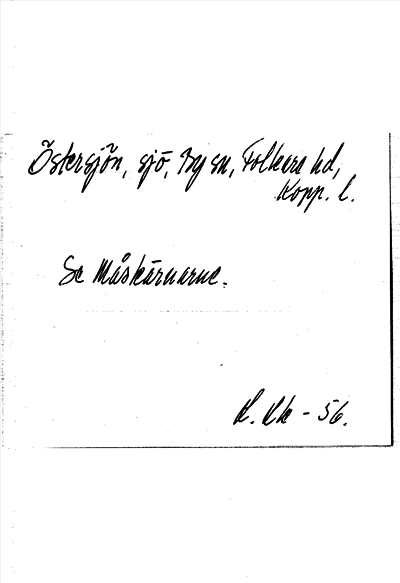 Östersjön, sjö, By sn, Folkare hd,
Kopp. l.
Se Måskärnarne.
R. Rk - 56.